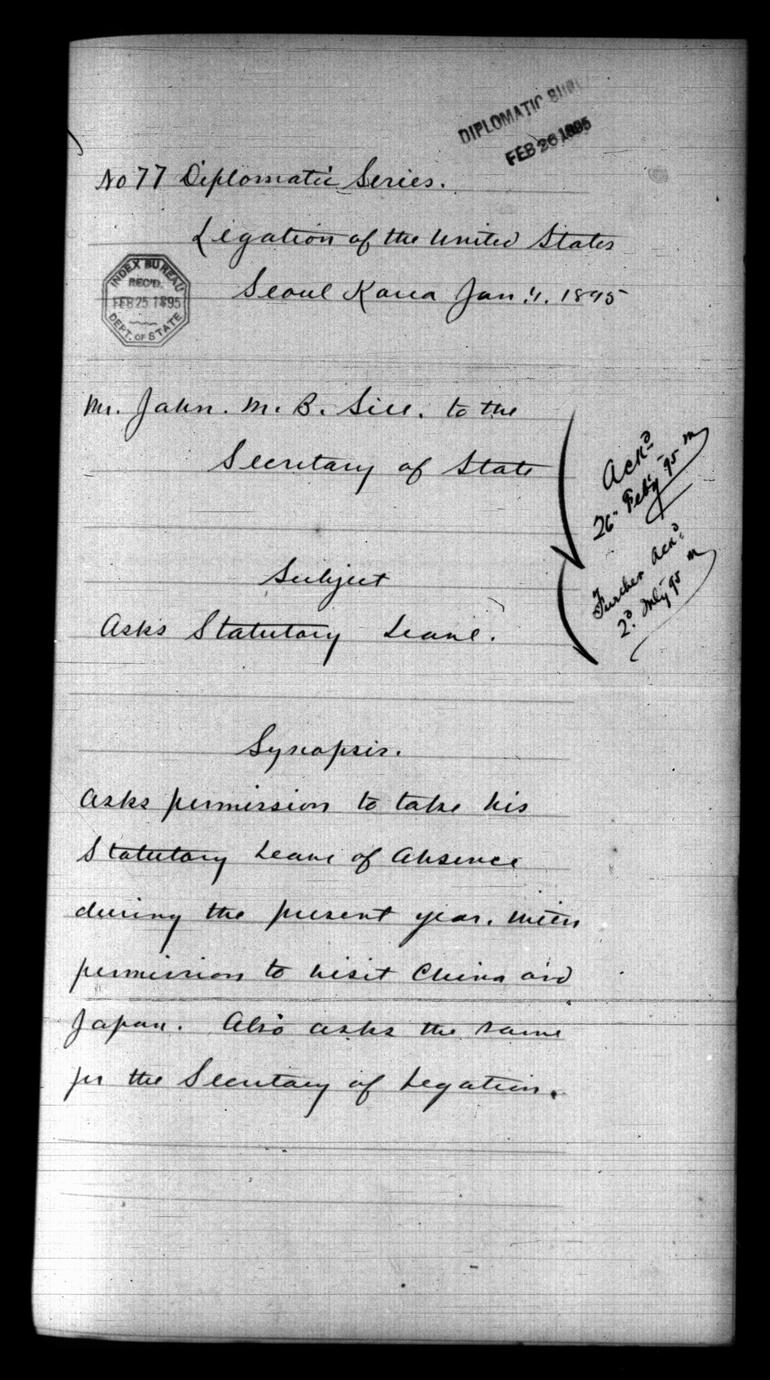 DIPLOMATIC BUREAU
FEB 26 1895
No 77 Diplomatic Series.
Legation of the United States
Seoul Korea Jan. 1895
INDEX BUREAU
REC'D.
FEB 25 1895
DEPT. OF STATE
Mr. John. M. B. Sill. to the
Secretary of State
Ackd
26 Feby 95 m
Further Ackd
2d July 95 m
Subject
Asks Statutory Leave.
Synopsis.
Asks permission to take his
Statutory Leave of Absence
during the present year. with
permission to visit China and
Japan. Also asks the same
for the Secretary of Legation.